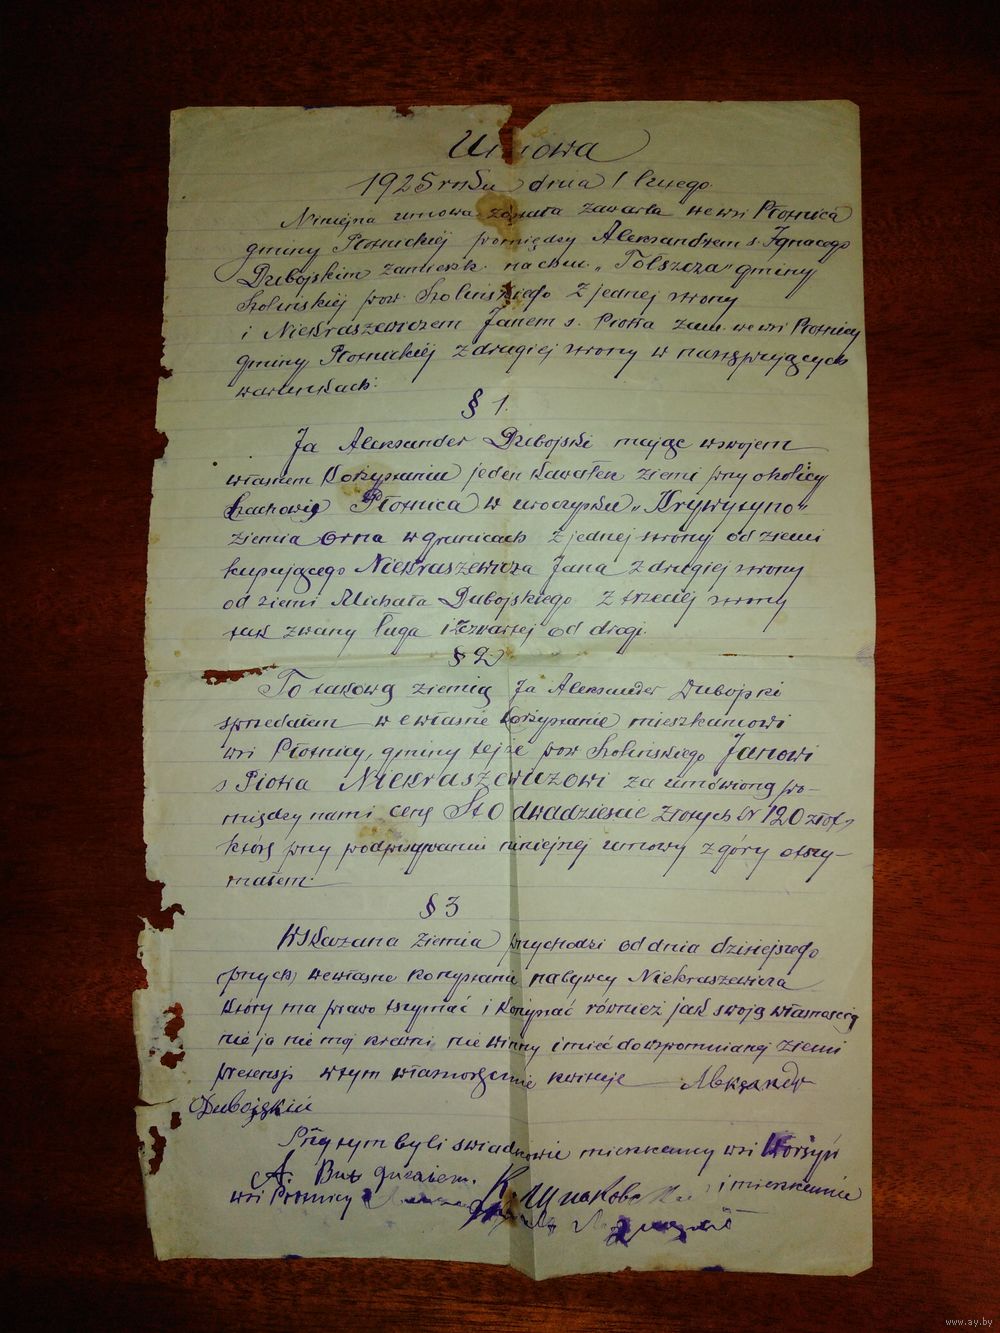 Umowa
1925 roku dnia 1 lutego.
Niniejsza umowa została zawarta we wsi Płotnica
gminy Płotnickiej pomiędzy Aleksandrem s. Ignacego
Dubojskim zamieszk. na chut. „Tolszcza" gminy
Stolińskiej pow. Stolińskiego z jednej strony
i Niekraszewiczem Janem s. Piotra zam. we wsi Płotnicy
gminy Płotnickiej z drugiej strony w następujących
warunkach:
§ 1.
Ja Aleksander Dubojski mając w swojem
własnem korzystaniu jeden kawałek ziemi przy okolicy
Płotnica w uroczysku „Krywytyno"
ziemia orna w granicach z jednej strony od ziemi
kupującego Niekraszewicza Jana z drugiej strony
od ziemi Michała Dubojskiego z trzeciej strony
tak zwany ługa i czwartej od drogi.
§ 2
To takową ziemię Ja Aleksander Dubojski
sprzedałem we własne korzystanie mieszkańcowi
wsi Płotnicy, gminy tejże pow Stolińskiego Janowi
s Piotra Niekraszewiczowi za umówioną po-
między nami cenę Sto dwadzieście złotych 120 złot,
którą przy podpisywaniu niniejszej umowy z góry otrzy-
małem.
§ 3
Wskazana ziemia przychodzi od dnia dzisiejszego
we własne korzystanie nabywcy Niekraszewicza
który ma prawo trzymać i korzystać również jak swoją własnością
nie ja nie moj krewni nie winny i mieć do wspomnianej ziemi
pretensji w tym własnoręcznie kwituje Aleksandr
Dubojskii
Przytym byli swiadkowie mieszkańcy wsi Worsyń
A. i mieszkańcie
wsi Płotnicy